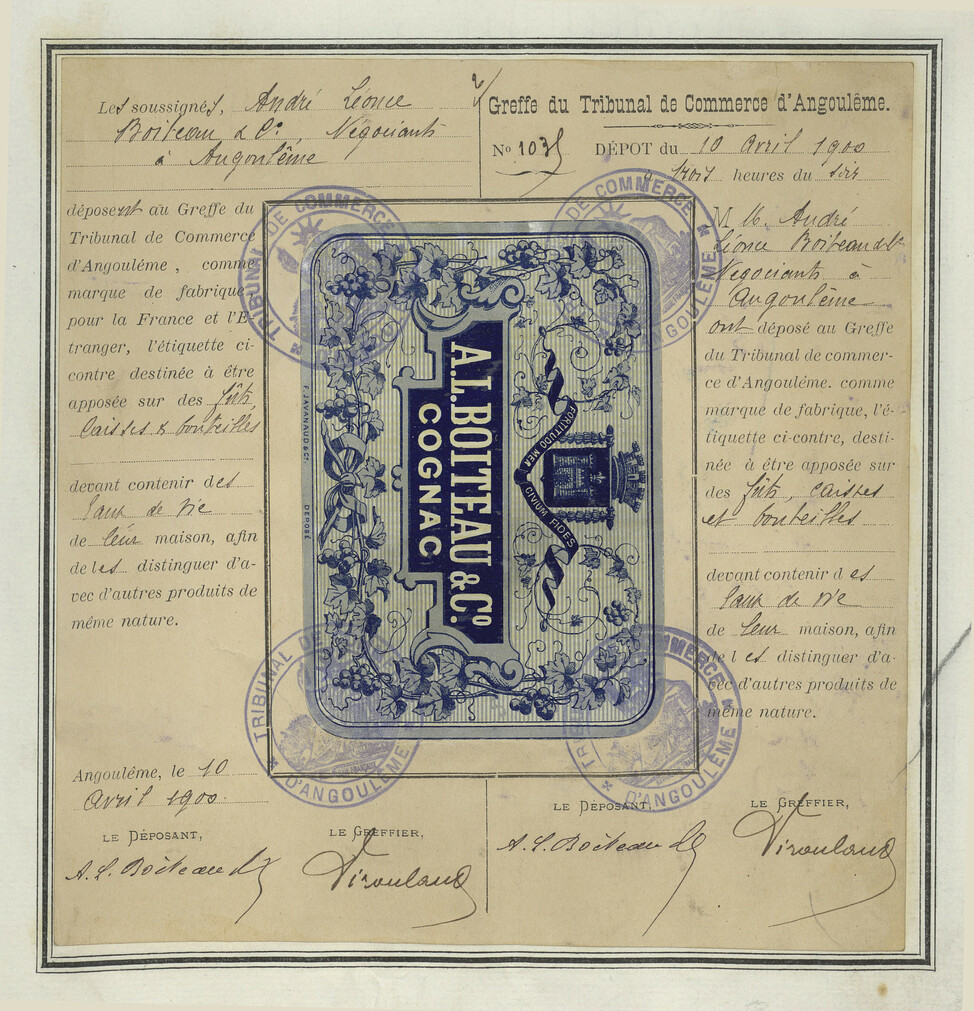 Les soussignés, André Léonce
Boiteau & Cie, Négociants
à Angoulême
déposent au Greffe du
Tribunal de Commerce
d'Angoulême, comme
marque de fabrique
pour la France et l'E-
tranger, l'étiquette ci-
contre destinée à être
apposée sur des fûts
caisses & bouteilles
devant contenir des
Eaux de Vie
de leur maison, afin
de les distinguer d'a-
vec d'autres produits de
même nature.
Angoulême, le 10
Avril 1900.
LE DÉPOSANT,
A. L. Boiteau & Cie
LE GREFFIER,
Greffe du Tribunal de Commerce d'Angoulême.
No 1035 DÉPOT du 10 Avril 1900
à trois heures du soir
M M. André
Léonce Boiteau & Cie
Négociants à
Angoulême
ont déposé au Greffe
du Tribunal de commer-
ce d'Angoulême. comme
marque de fabrique, l'é-
tiquette ci-contre, desti-
née à être apposée sur
des fûts, caisses
et bouteilles
devant contenir des
Eaux de Vie
de leur maison, afin
de les distinguer d'a-
vec d'autres produits de
même nature.
LE DÉPOSANT,
A. L. Boiteau & Cie
LE GREFFIER,
A.L. BOITEAU & Co.
COGNAC
FORTITUDO MEA
CIVIUM FIDES
DÉPOSÉ
TRIBUNAL DE COMMERCE
D'ANGOULÊME
TRIBUNAL DE COMMERCE
D'ANGOULÊME
TRIBUNAL DE COMMERCE
D'ANGOULÊME
TRIBUNAL DE COMMERCE
D'ANGOULÊME